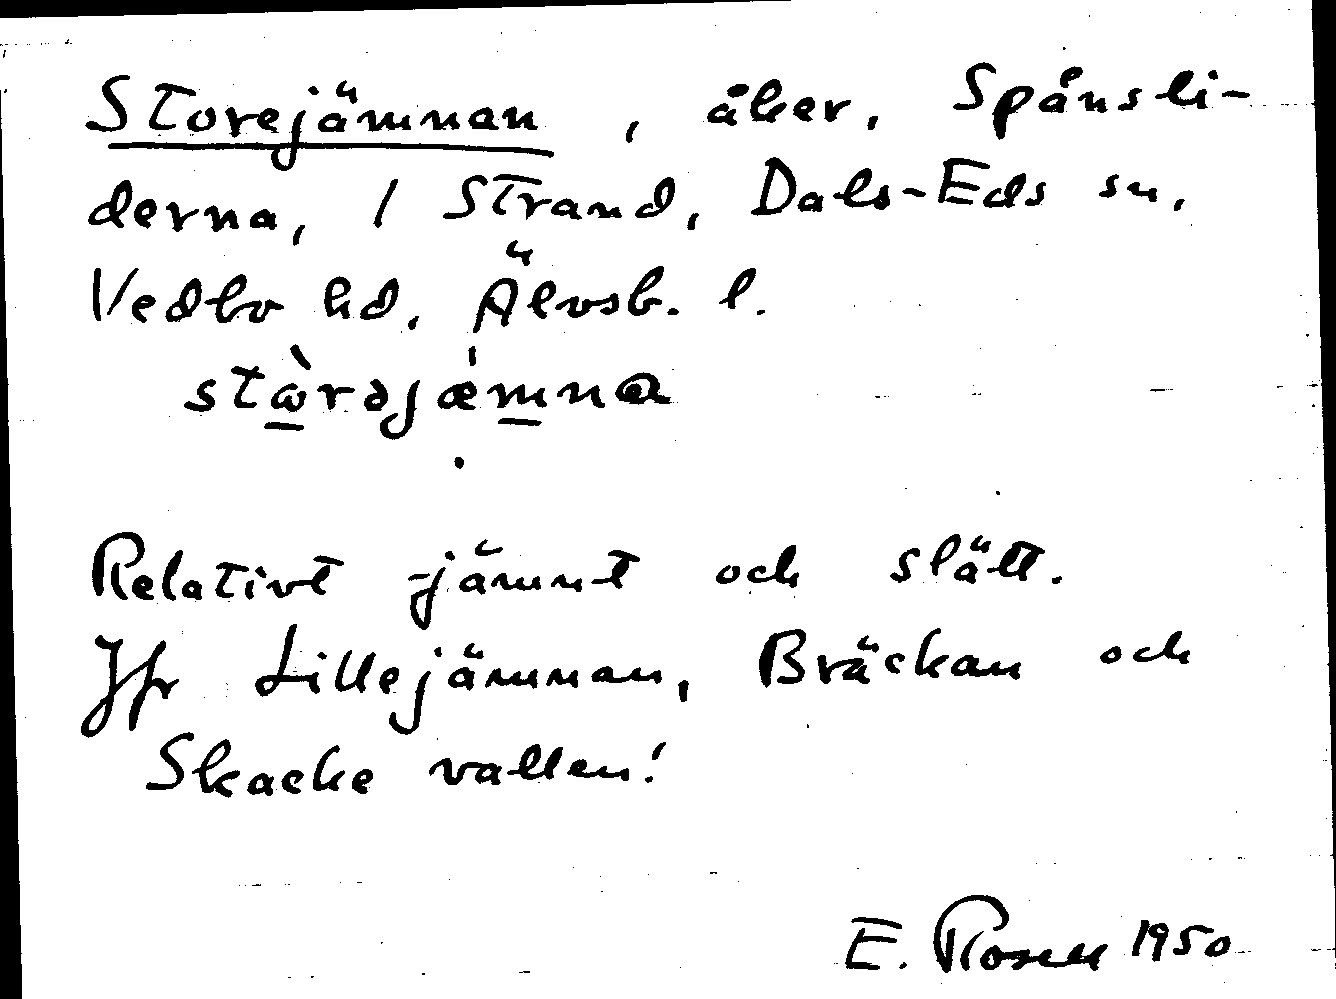 Storejämnan, åker, Spånsli-
derna, / Strand, Dals-Eds sn,
Vedbo hd, Älvsb. l.
stὼrəjæ̍mnɑ
Relativt jämnt och slätt.
Jfr Lillejämnan, Bräckan och
Skacke vallen!
E. Rosell 1950